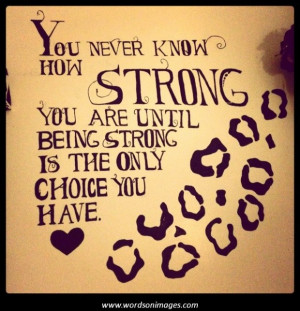 You never know
how STRONG
you are until
being strong
is the only
choice you
have.
www.wordsonimages.com